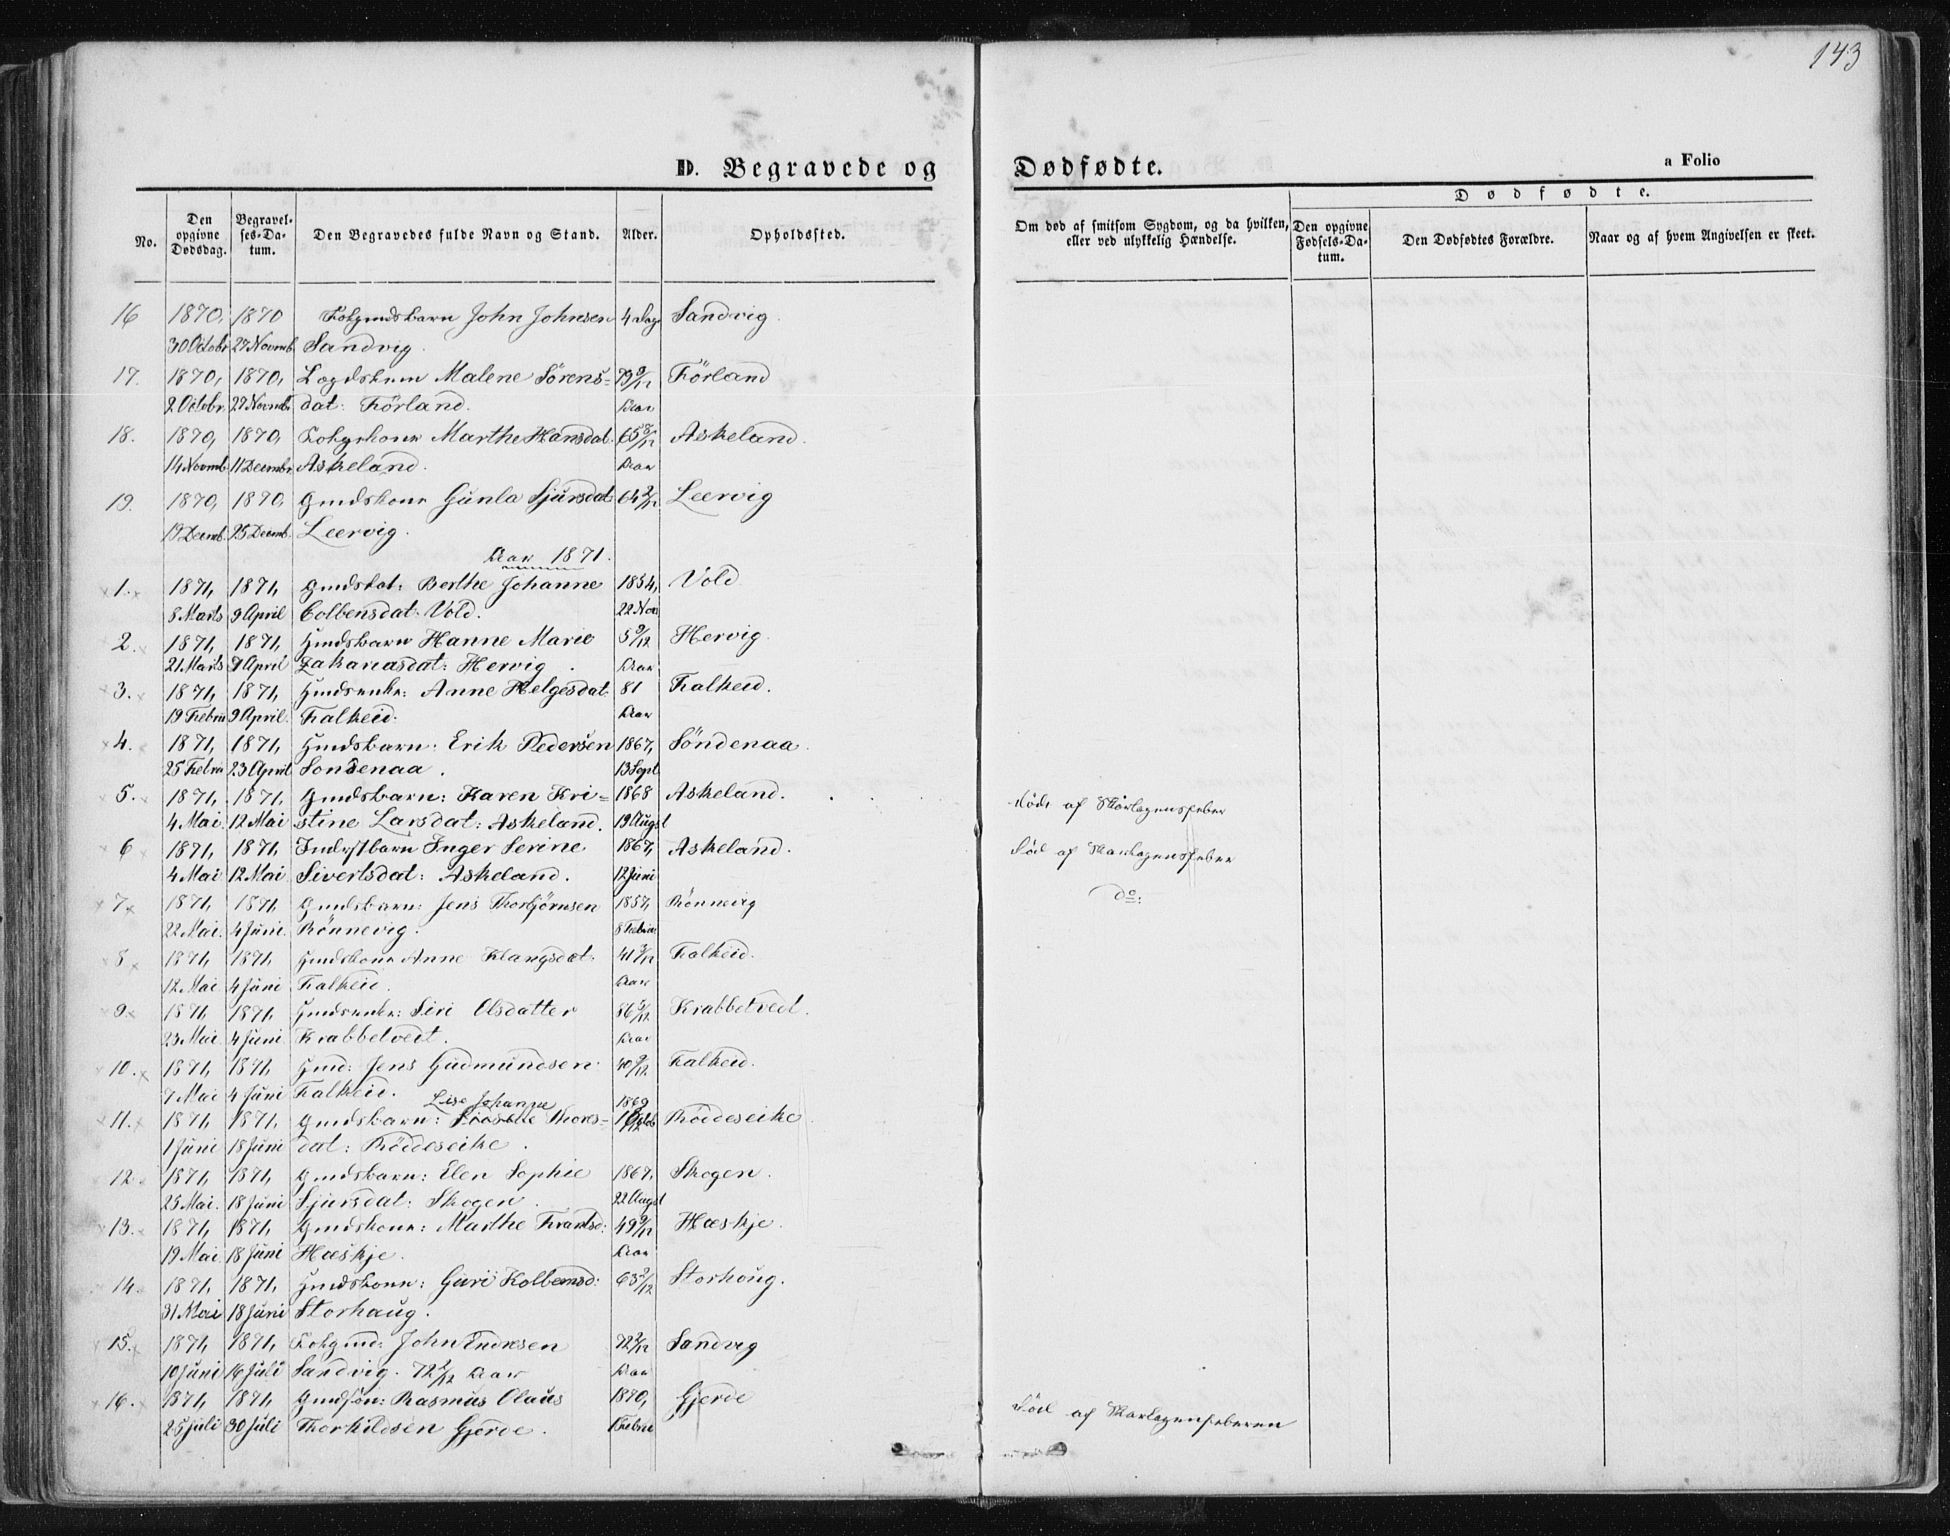 143
D. Begravede og Dødfødte. a Folio
No. Den opgivne Dødsdag. Begravelses-Datum. Den Begravedes fulde Navn og Stand. Alder. Opholdssted. Om død af smitsom Sygdom, og da hvilken, eller ved ulykkelig Hændelse. Dødfødte. Den opgivne Fødsels-Datum. Den Dødfødtes Forældre. Naar og af hvem Angivelsen er skeet.
16 1870, 1870 John Johnsen 4 Dage Sandvig
30 Octobr 27 Novmb. Sandvig.
17. 1870, 1870, Lægdslem Malene Sörens= 79 9/12 Förland
2 Octobr. 27 Novmbr dat: Förland. Aar
18. 1870, 1870, Marthe Hansdat. 65 8/12 Askeland.
14 Novmb 11 Decmbr Askeland. Aar
19. 1870, 1870, Gmdskone Gunla Sjursdat 64 2/12 Leervig
19 Decmb. 25 Decmb. Leervig.
Aar 1871.
1. 1871, 1871, Berthe Johanne 1854, Vold
8 Marts 9 April Colbensdat. Vold. 22 Nov
2. 1871, 1871, Gmdsbarn Hanne Marie 5 9/12 Hervig.
21 Marts 9 April Zakariasdat: Hervig. Aar
3. 1871, 1871, Gmdsenke: Anne Helgesdat. 81 Falkeid.
19 Febru 9 April. Falkeid. Aar
4. 1871, 1871, Gmdsbarn: Erik Pedersen 1867, Söndenaa.
25 Febru 23 April Sondenaa. 13 Sept
5. 1871, 1871, Gmdsbarn: Karen Kri= 1868 Askeland. Död af Skarlagensfeber
4 Mai. 12 Mai stine Larsdat: Askeland. 19 Augst
6 1871, 1871, Inderstbarn Inger Serine 1867, Askeland. Död af Skarlagensfeber
4 Mai 12 Mai Sivertsdat: Askeland. 12 Juni
7 1871, 1871, Gmdsbarn: Jens Thorbjörnsen 1857, Rönnevig do:
22 Mai. 4 Juni. Rönnevig. 8 Februar
8 1871, 1871, Gmdskone Anne Klangsdat. 41 3/12 Falkeid.
12 Mai 4 Juni Falkeid. Aar
9. 1871, 1871, Gmdsenke: Siri Olsdatter 86 5/12 Krabbetvedt.
23 Mai. 4 Juni Krabbetvedt. Aar
10. 1871, 1871, Gmd: Jens Gudmundsen. 40 9/12 Falkeid.
7 Mai 4 Juni Falkeid. Lise Johanne 1869
11. 1871, 1871, Gmdsbarn: Thores= Röddeseike
1 Juni 18 Juni dat: Röddeseike.
12. 1871, 1871, Gmdsbarn: Elen Sophie 1867, Skogen.
25 Mai. 18 Juni Sjursdat: Skogen. 22 Augst
13. 1871, 1871, Gmdskone: Marthe Frantsd: 49 9/12 Hæskje.
19 Mai 18 Juni Hæskje. Aar
14. 1871, 1871, Gmdskone: Guri Kolbensd: 63 2/12 Storhoug.
31 Mai 18 Juni Storhaug.
15. 1871, 1871, John Endresen 72 2/12 Sandvig
10 Juni 16 Juli Sandvig. 72 2/12 Aar Aar
16. 1871, 1871, Gmdsön: Rasmus Olaus 1870, Gjerde Död af Skarlagensfeberen
25 juli 30 Juli Thorkildsen Gjerde. Febru